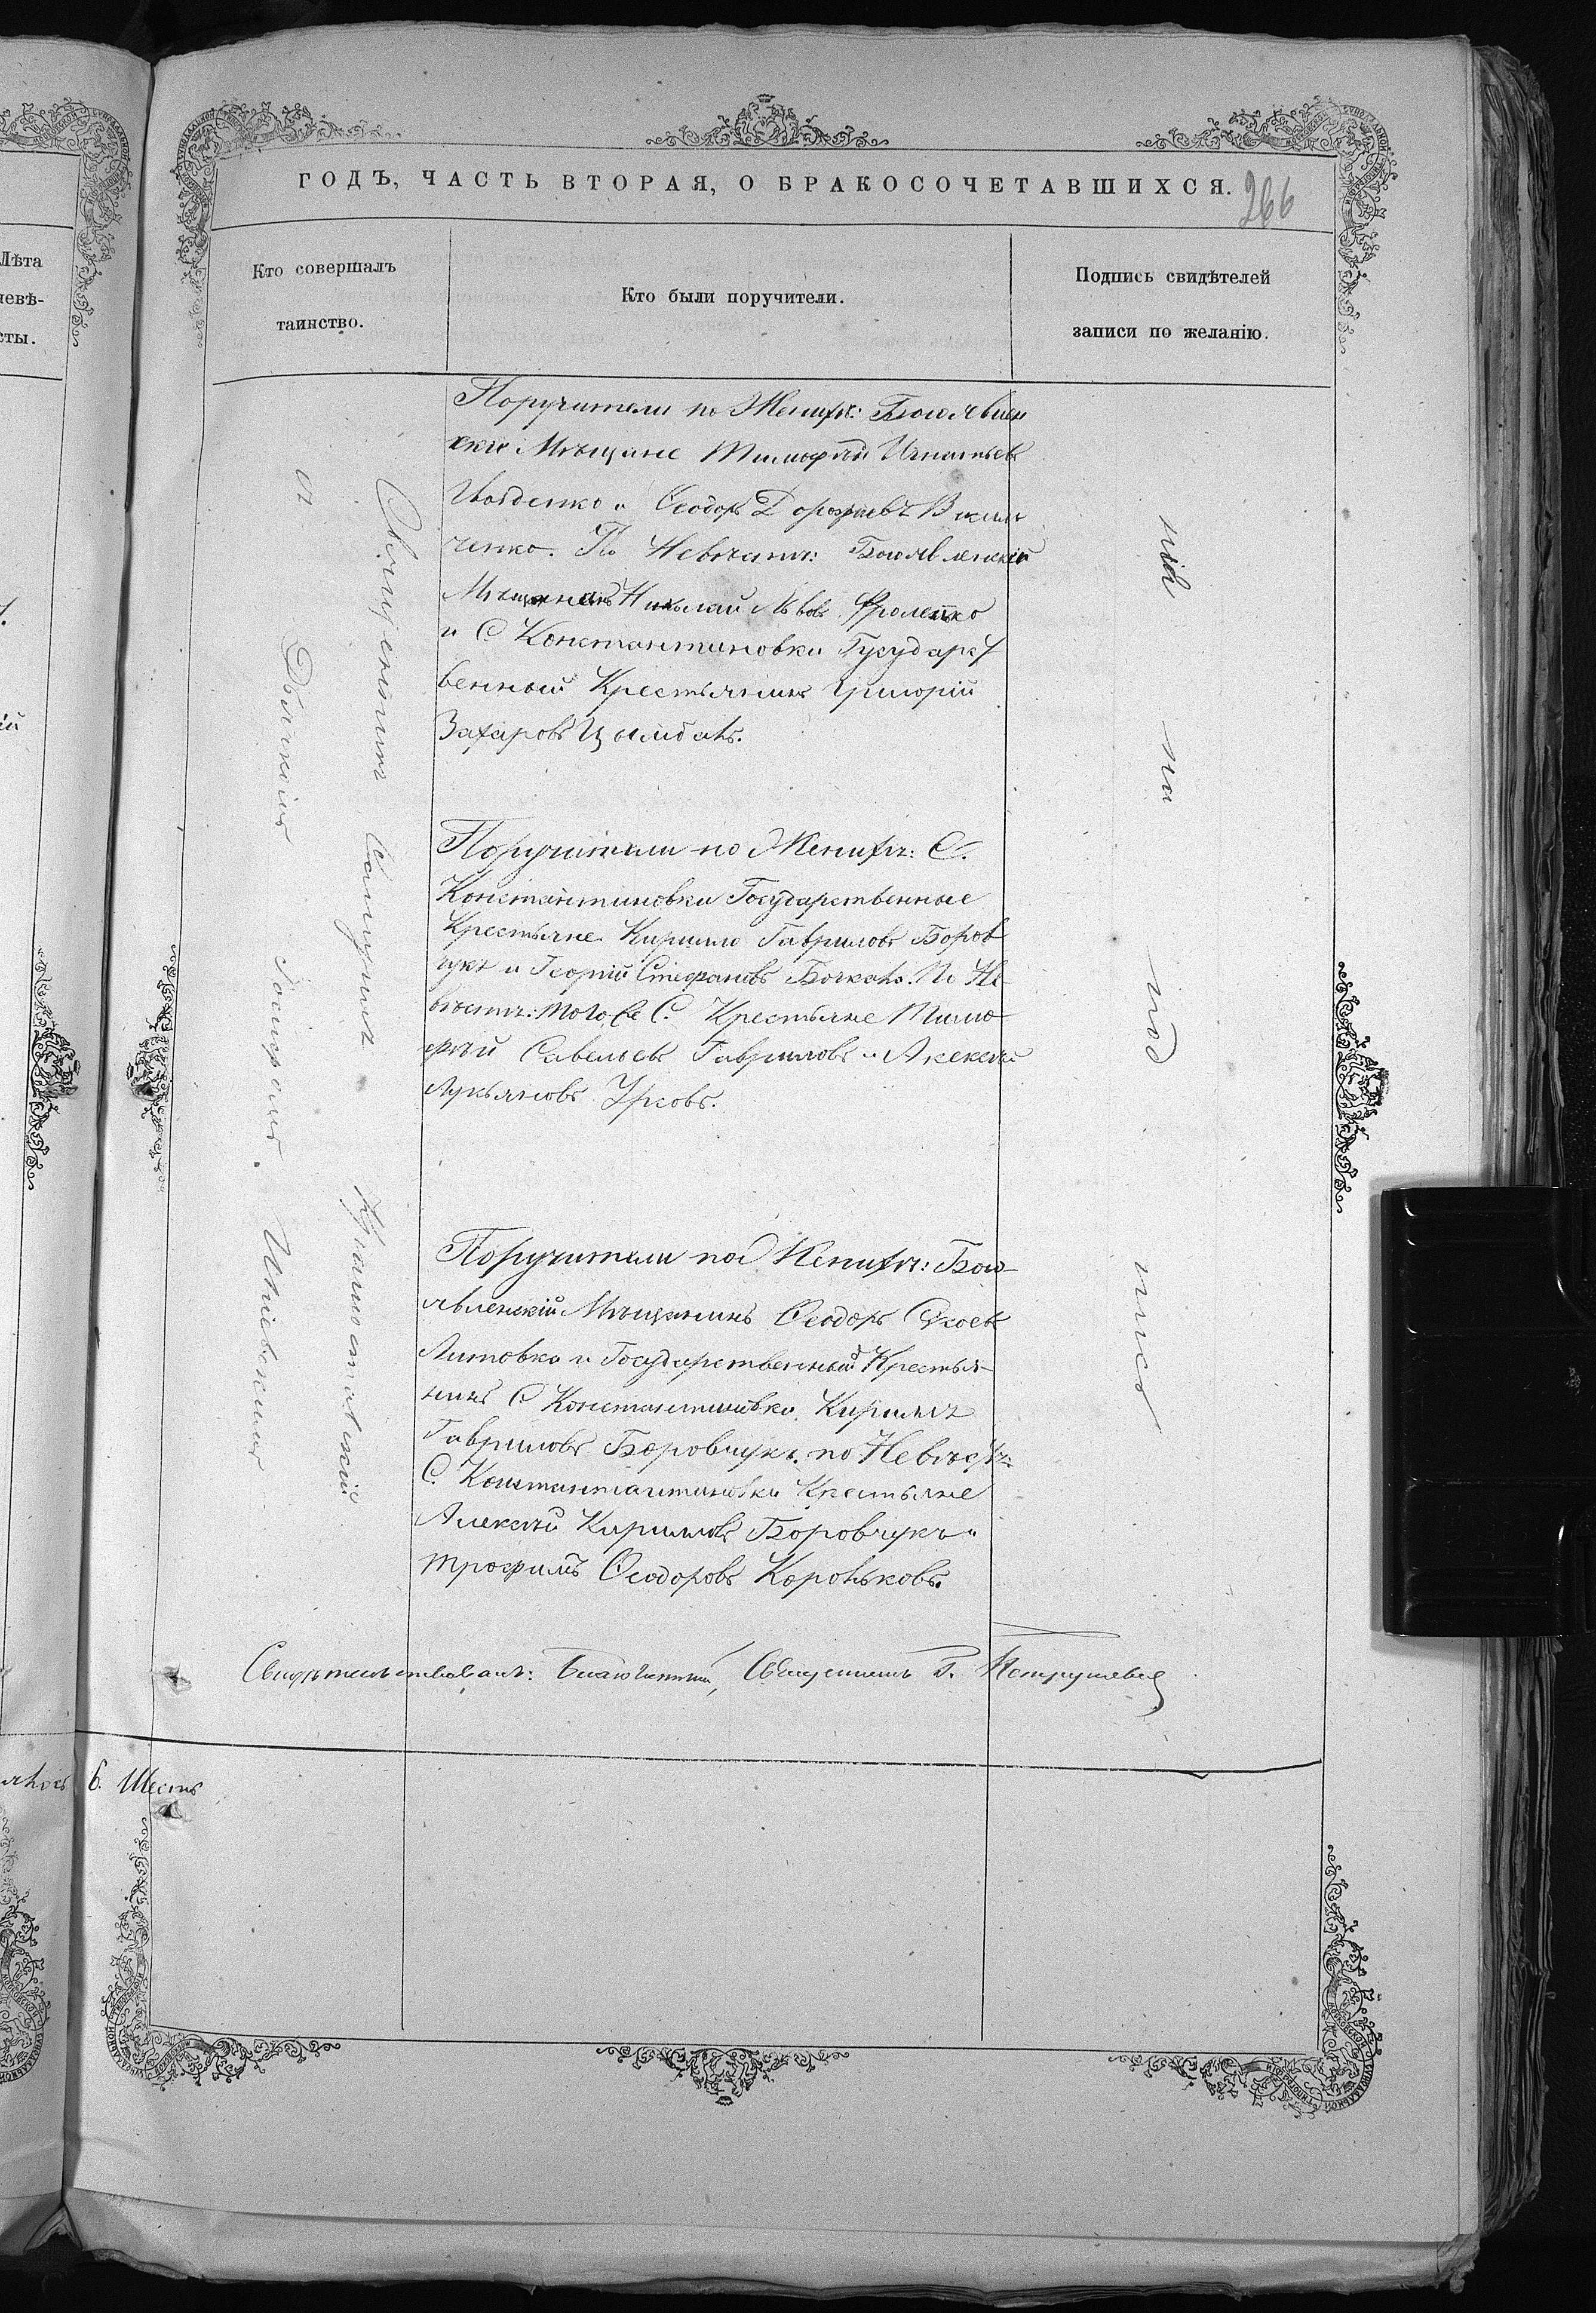 ГОДЪ, ЧАСТЬ ВТОРАЯ, О БРАКОСОЧЕТАВШИХСЯ.
266
Лѣта
невѣ-
сты.
Кто совершалъ
таинство.
Кто были поручители.
Подпись свидѣтелей
записи по желанію.
Поручители по Женихѣ: Богоявлен
скіе Мѣщане Тимофѣй Игнатьевъ
Гвозденко и Ѳеодоръ Дорофѣевъ Васил
ченко. По Невѣстѣ: Богоявленскій
Мѣщанинъ Николай Львовъ Фроленко
и С. Константиновки Государст
венный Крестьянинъ Григорій
Захаровъ Цымбалъ.
Поручители по Женихѣ: С.
Константиновки Государственные
Крестьяне Кирилло Гавриловъ Боров
чукъ и Георгій Стефановъ Бочкалъ. По Не
вѣстѣ: того же С. Крестьяне Тимо
фѣй Савельевъ Гавриловъ и Алексѣй
Лукьяновъ Урсовъ.
Поручители по Женихѣ: Бого-
явленскій Мѣщанинъ Ѳеодоръ
Литовка и Государственный Крестья-
нинъ С Константиновки Кириллъ
Гавриловъ Боровчукъ. по Невѣстѣ:
С. Константантиновки Крестьяне
Алексѣй Кириловъ Боровчукъ и
Трофимъ Ѳеодоровъ Коротьковъ.
Священникъ
съ Дьячкомъ Іосифомъ
под
пись
Свидѣтельствовалъ: Благочинный, Священникъ Г. Петрушевс
6. Шесть